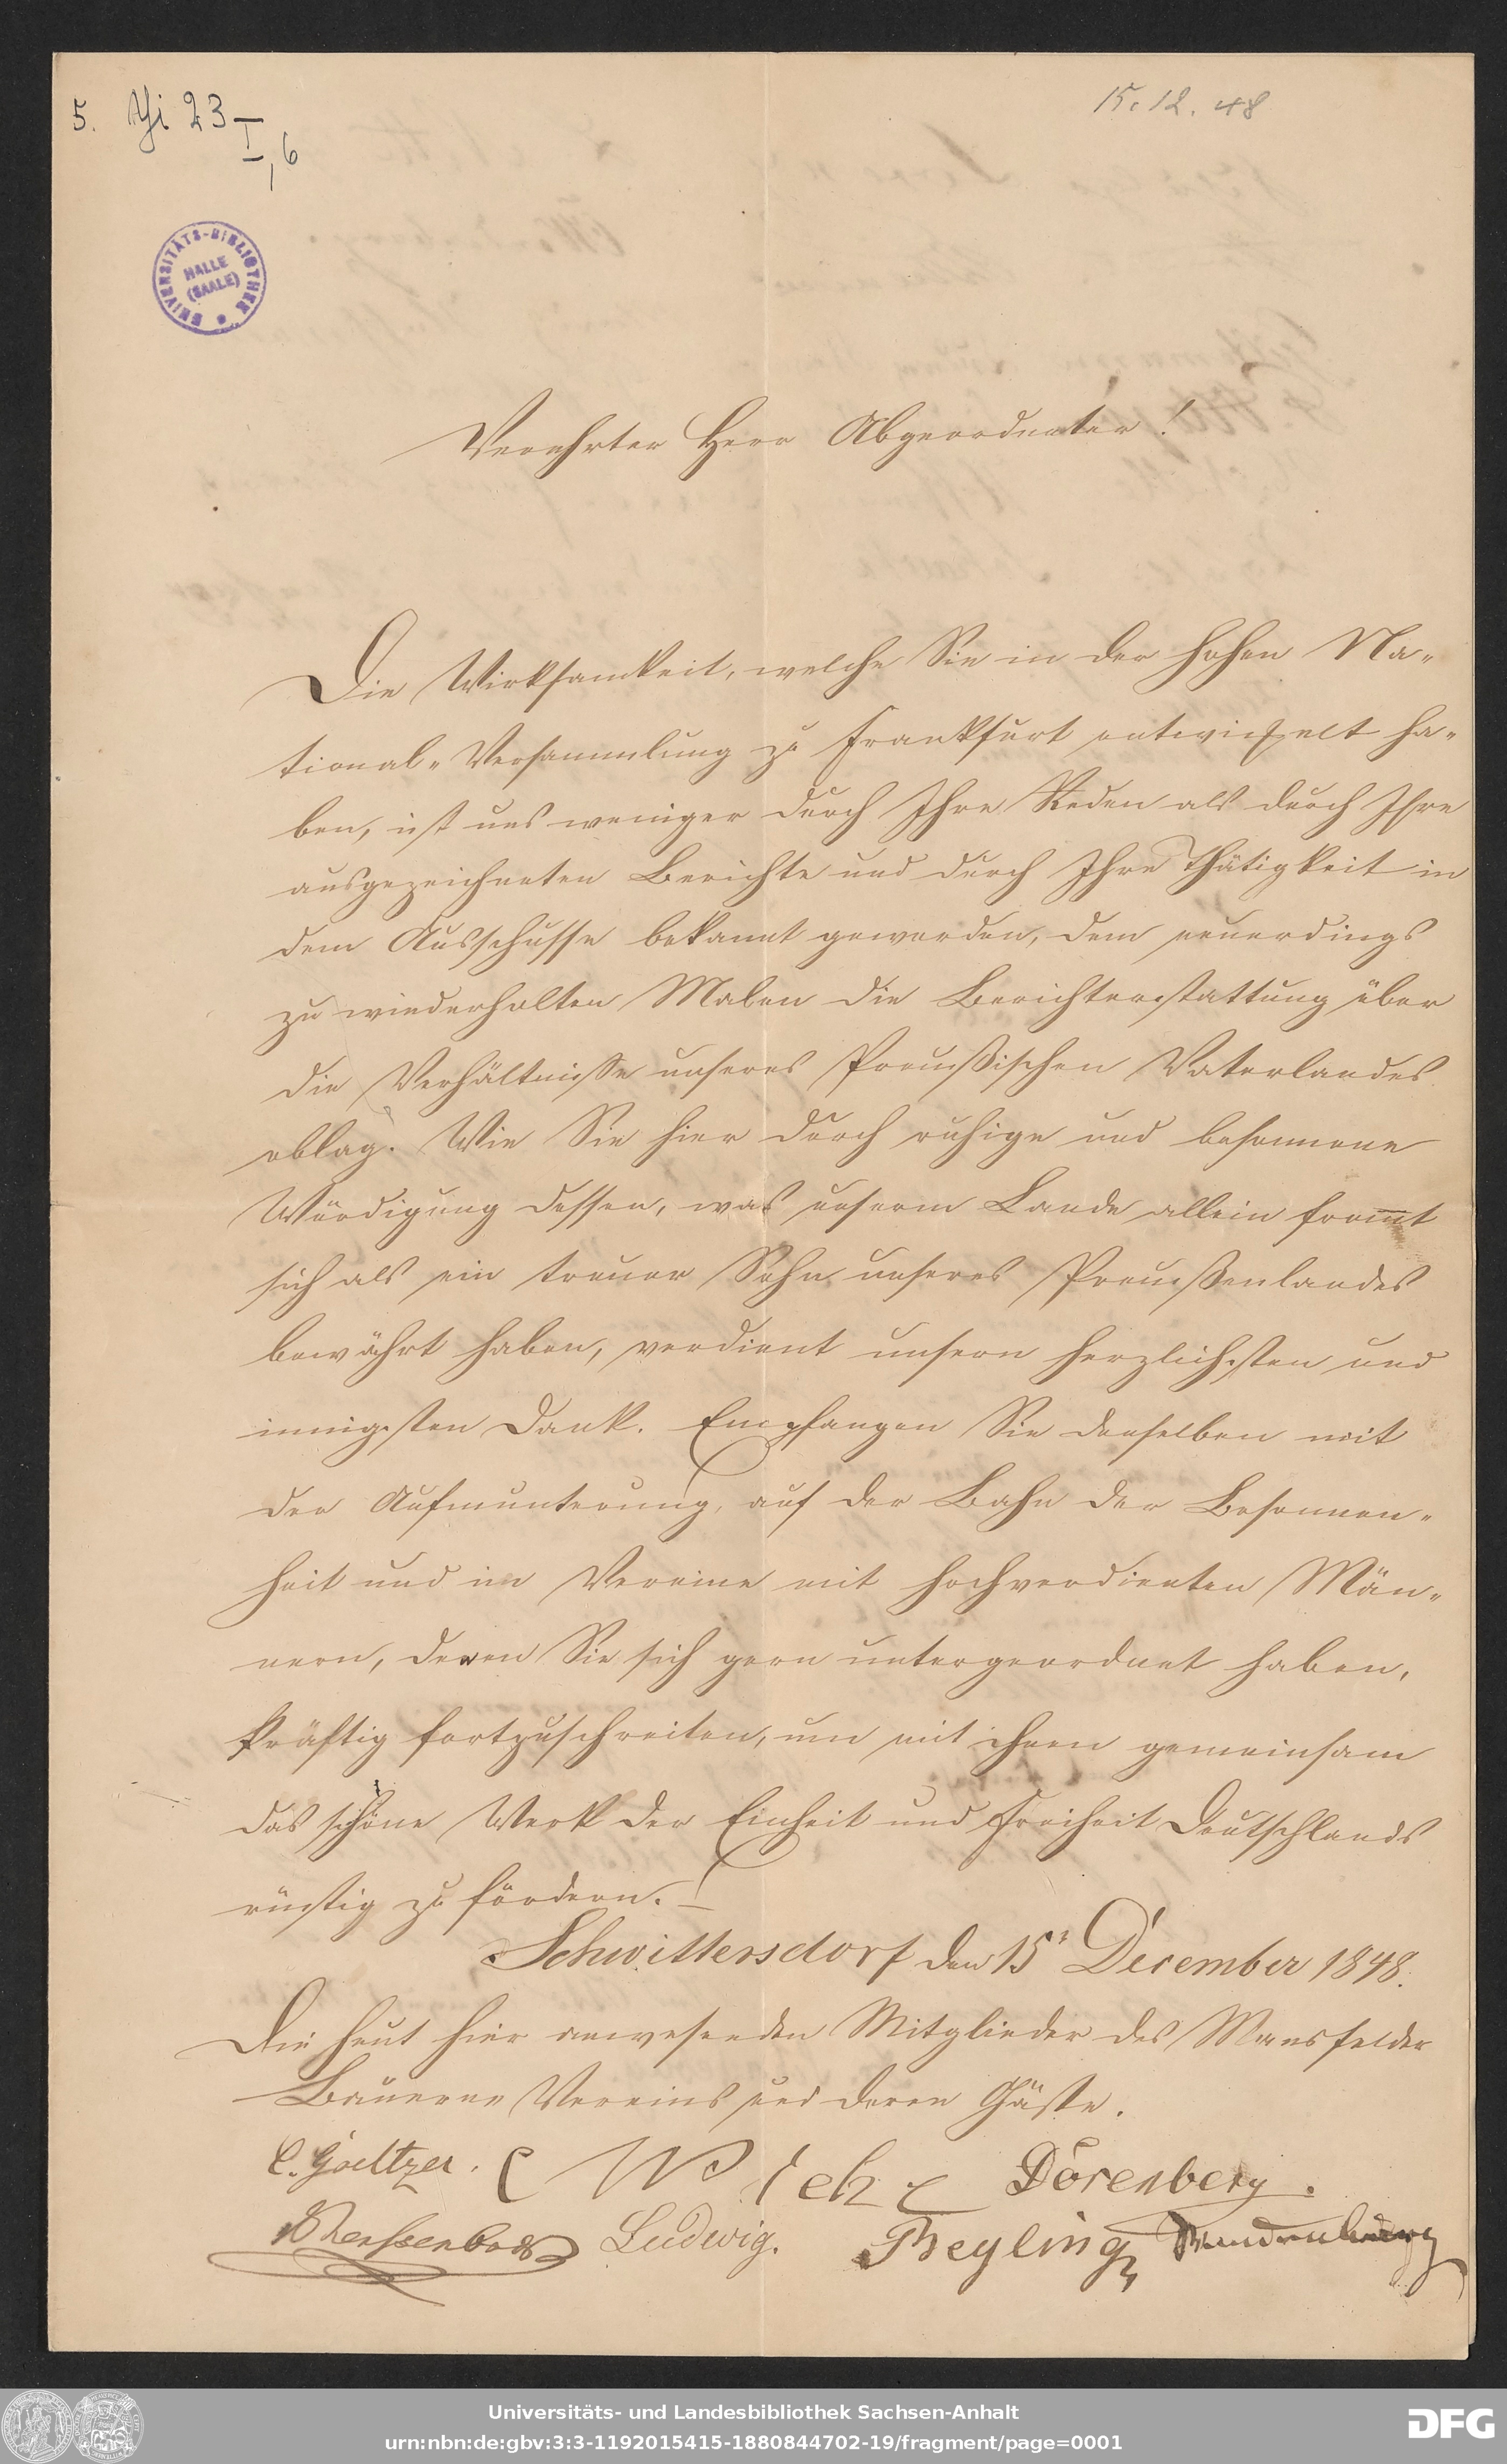 5. Yi 23 I, 6
15.12.48
UNIVERSITÄTS-BIBLIOTHEK
HALLE
(SAALE)
Verehrter Herr Abgeordneter!
Die Wirksamkeit, welche Sie in der hohen Na-
tional-Versammlung zu Frankfurt entwickelt ha-
ben, ist uns weniger durch Ihre Reden als durch Ihre
ausgezeichneten Berichte und durch Ihre Thätigkeit in
dem Ausschusse bekannt geworden, dem neuerdings
zu wiederholten Malen die Berichterstattung über
die Verhältnisse unseres Preußischen Vaterlandes
oblag. Wie Sie hier durch ruhige und besonnene
Würdigung dessen, was unserm Lande allein from̅t
sich als ein treuer Sohn unseres Preußenlandes
bewährt haben, verdient unsern herzlichsten und
innigsten Dank. Empfangen Sie denselben mit
der Aufmunterung, auf der Bahn der Besonnen-
heit und im Vereine mit hochverdienten Män-
nern, denen Sie sich gern untergeordnet haben,
kräftig fortzuschreiten, um mit ihnen gemeinsam
das schöne Werk der Einheit und Freiheit Deutschlands
rüstig zu fördern. –
Schwittersdorf den 15t December 1848.
Die heut hier anwesenden Mitglieder des Mansfelder
Bauern Vereins und deren Gäste.
C. Goeltzer. Dörenberg.
Ludwig. Beyling Brandenburg
Universitäts- und Landesbibliothek Sachsen-Anhalt
urn:nbn:de:gbv:3:3-1192015415-1880844702-19/fragment/page=0001
DFG